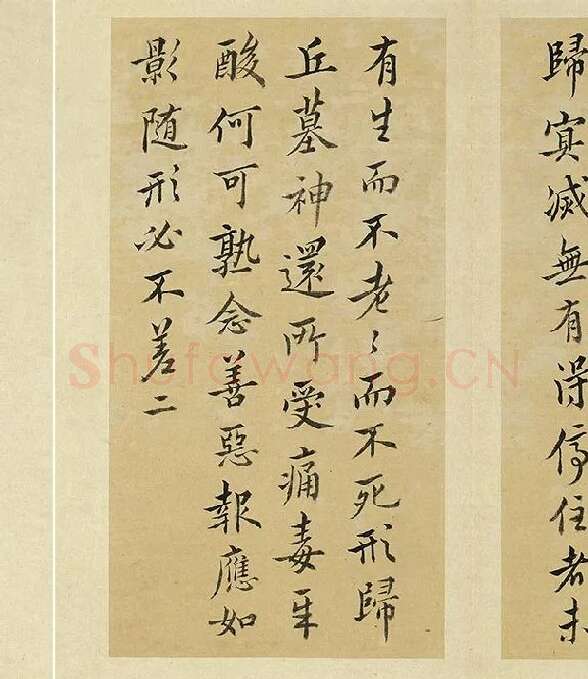 歸冥滅無有得停住者未
有生而不老〻而不死形歸
丘墓神還所受痛毒辛
酸何可熟念善惡報應如
影随形必不差二
Shufawang.CN